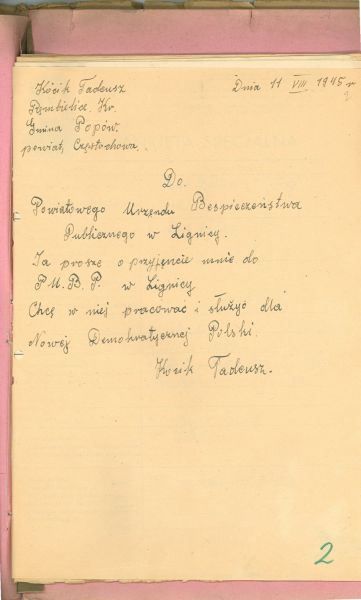 Kócik Tadeusz
Dnia 11 VIII 1945 r
Rembielice Kr.
Gmina Popów.
powiat, Częstochowa.
Do.
Powiatowego Urzendu Bespieczeństwa
Publicznego w Lignicy.
Ja proszę o przyjęncie mnie do
P.U.B.P. w Lignicy
Chcę w niej pracować i służyć dla
Nowej Demokratycznej Polski.
Kocik Tadeusz.
2